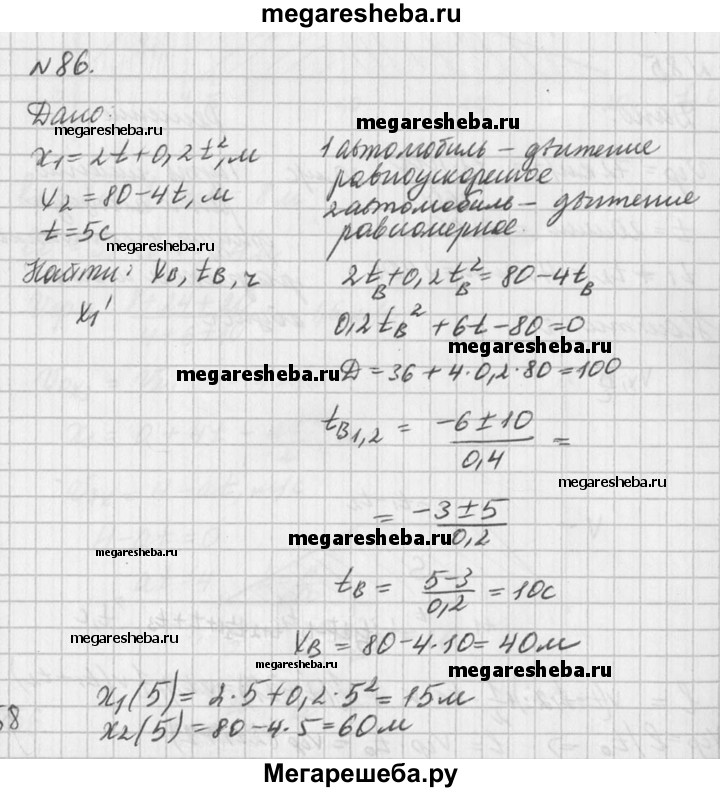 megaresheba.ru
N86.
Дано:
megaresheba.ru
x₁=2t+0,2t², м
x₂=80-4t, м
t=5с
megaresheba.ru
Найти: xв, tв, r
x₁'
megaresheba.ru
1 автомобиль – движение
равноускоренное
megaresheba.ru
2 автомобиль – движение
равномерное.
2tв+0,2tв²=80-4tв
0,2tв²+6t-80=0
megaresheba.ru
megaresheba.ru
Д=36+4·0,2·80=100
tв₁,₂ = (-6±10)/0,4 =
megaresheba.ru
= (-3±5)/0,2
megaresheba.ru
megaresheba.ru
tв = (5-3)/0,2 = 10с
megaresheba.ru
xв = 80-4·10=40м
megaresheba.ru
x₁(5)=2·5+0,2·5²=15м
x₂(5)=80-4·5=60м
8
Мегарешеба.ру